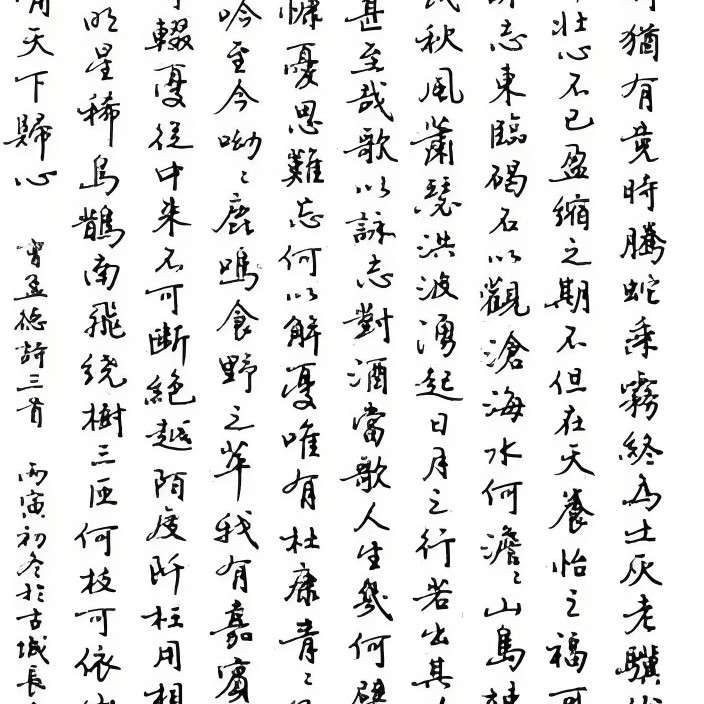 猶有竟時騰蛇乘霧終為土灰老驥
壯心不已盈縮之期不但在天養怡之福可
志東臨碣石以觀滄海水何澹々山島竦
秋風蕭瑟洪波湧起日月之行若出其
甚至哉歌以詠志對酒當歌人生幾何譬
慷憂思難忘何以解憂唯有杜康青々
吟至今呦々鹿鳴食野之苹我有嘉賓
輟憂從中來不可斷絕越陌度阡枉用相
明星稀烏鵲南飛繞樹三匝何枝可依
天下歸心 曹孟德詩三首 丙寅初冬於古城長